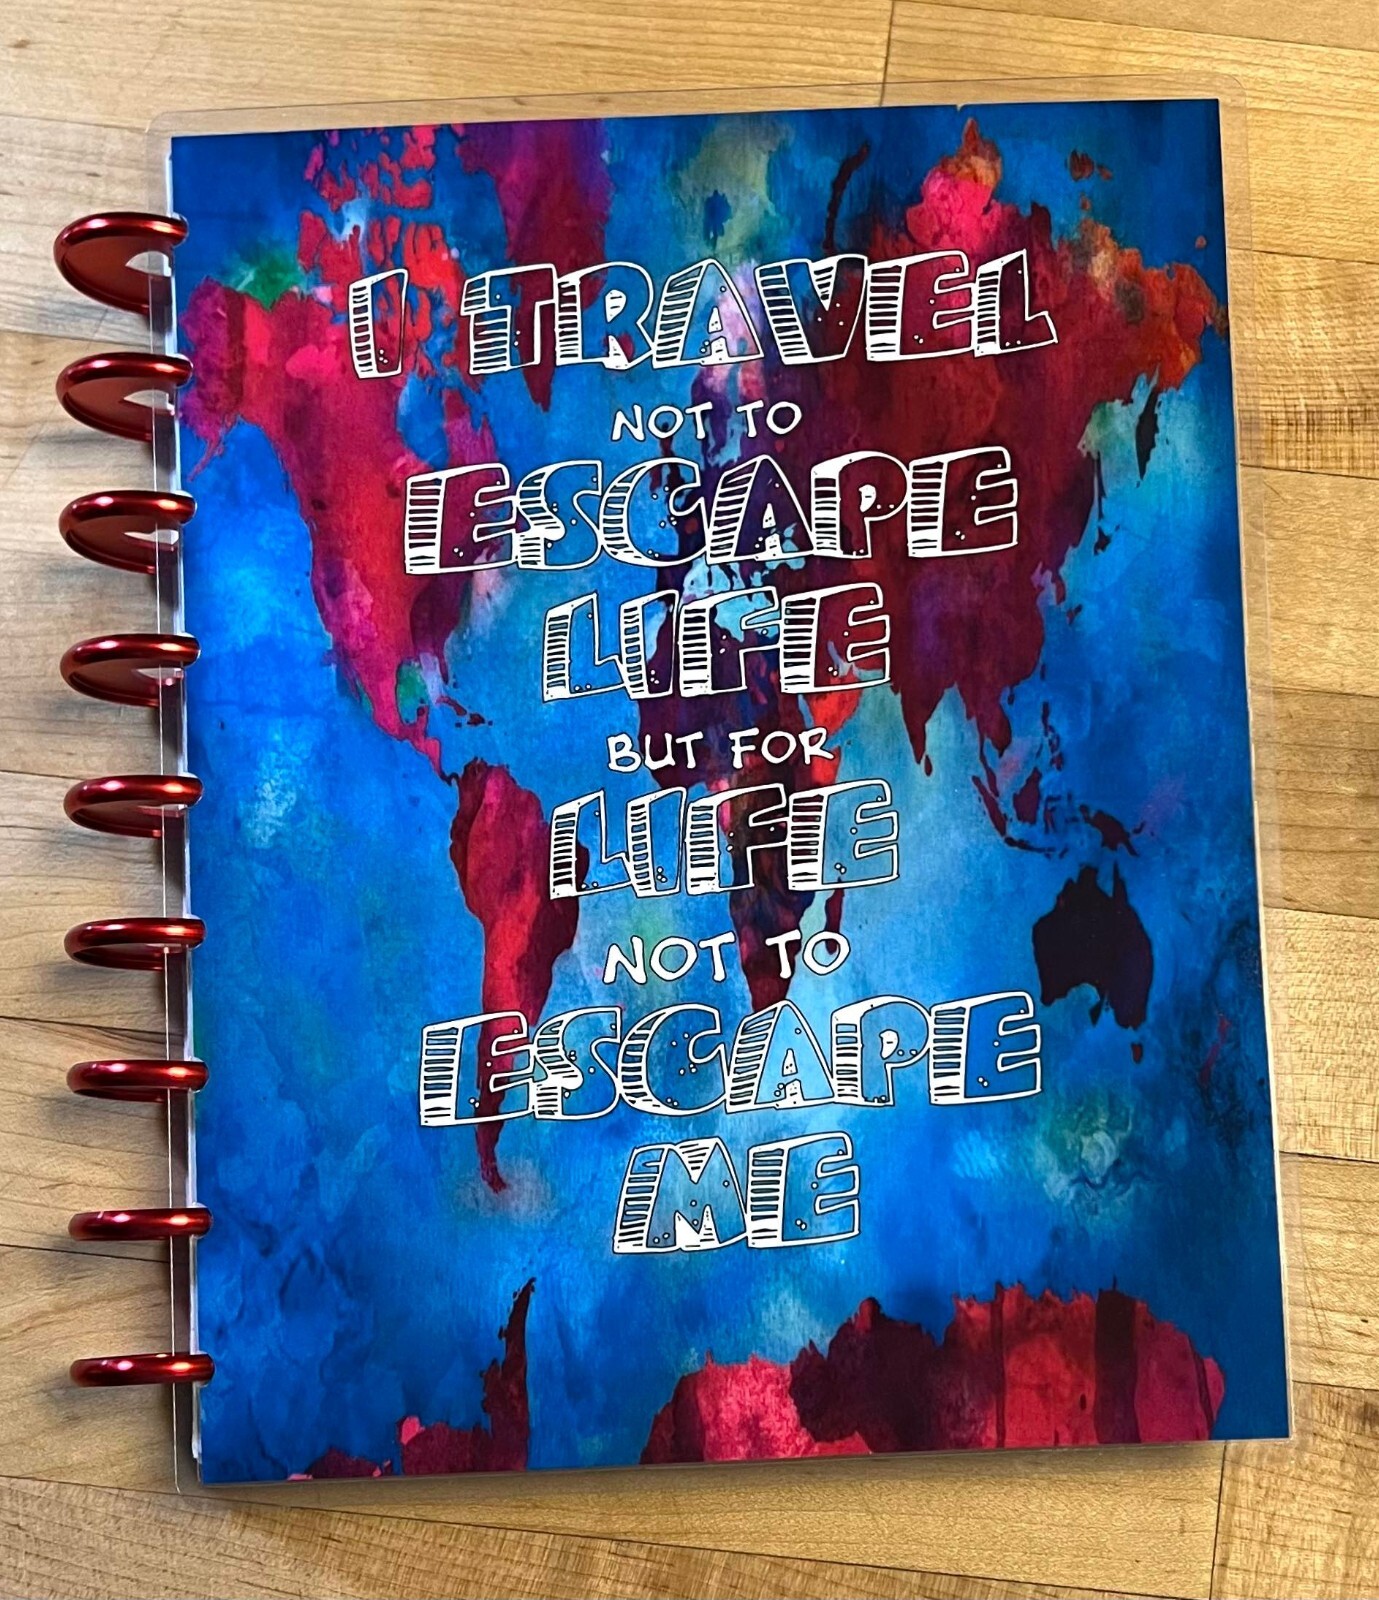 I TRAVEL
NOT TO
ESCAPE
LIFE
BUT FOR
LIFE
NOT TO
ESCAPE
ME